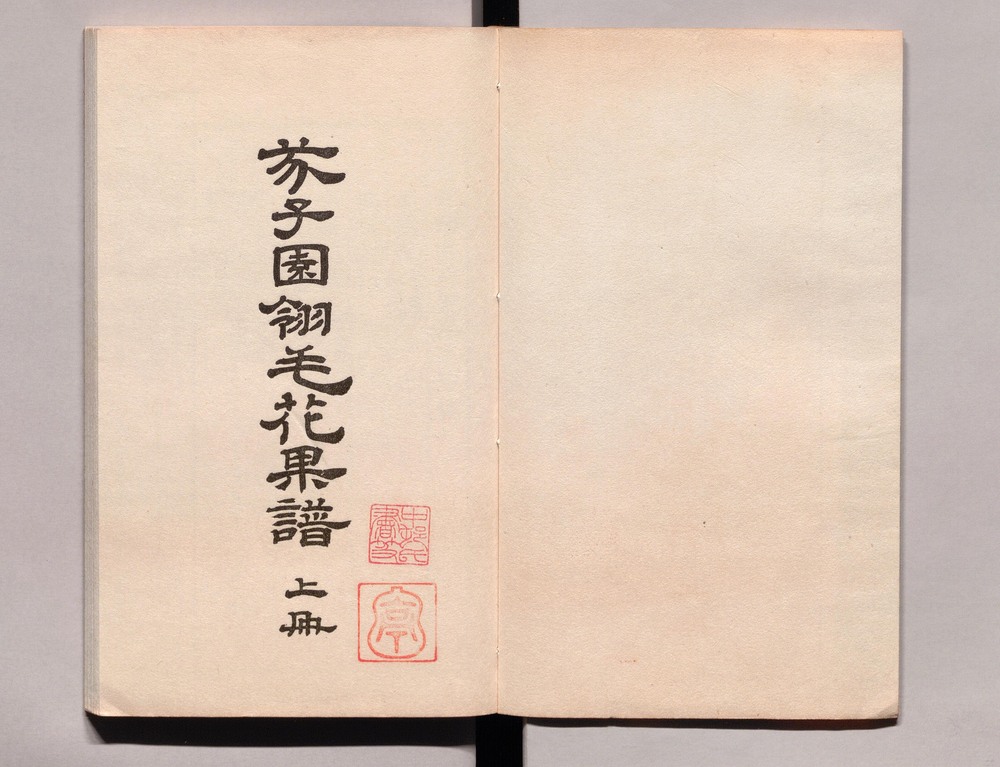 芥子園翎毛花果譜 上冊
亭